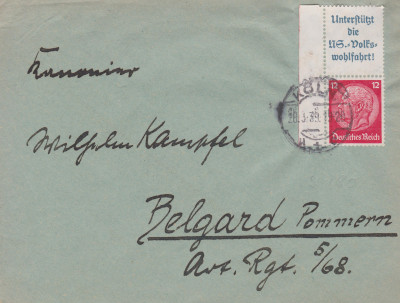 Unterstützt
die
NS.-Volks-
wohlfahrt!
Kanonier
KÖLN
12 12
Deutsches Reich
Wilhelm Kampfel
Belgard Pommern
Art. Rgt. 5/68.